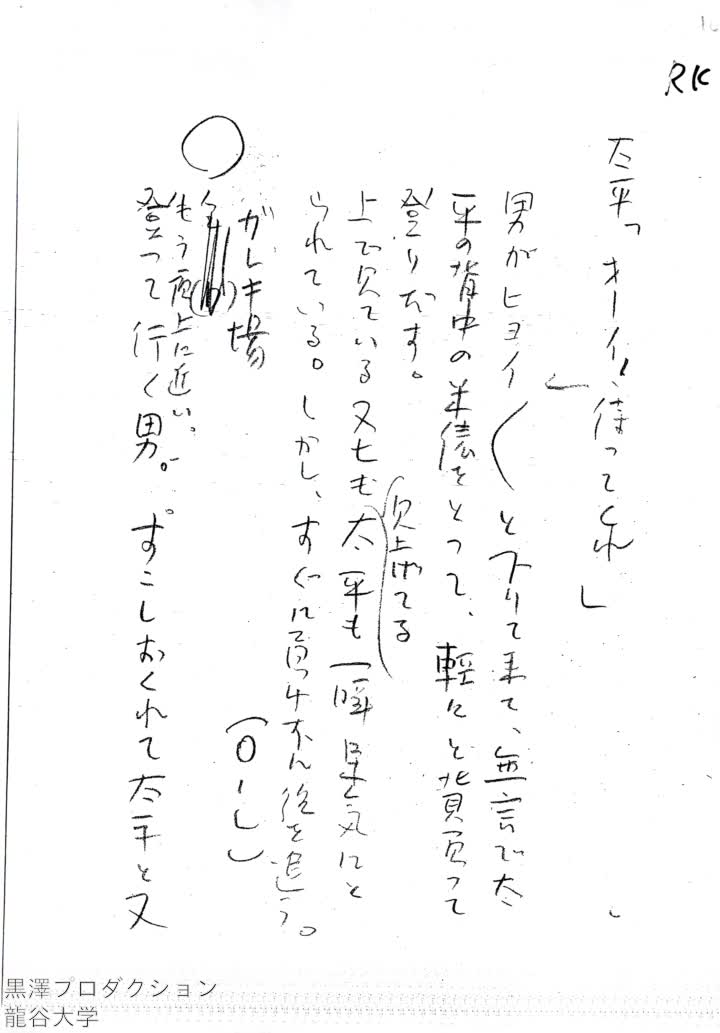 RK
太平「オーイ、待ってくれ」
男がヒョイ〱と下りて来て、無言で太
平の背中の米俵をとって、軽々と背負って
登りだす。
見上げてる
上で見ている又七も太平も一瞬呆気にと
られている。しかし、すぐに負けずに後を追う。
(O・L)
○
ガレキ場
もう頂上に近い。
登って行く男。すこしおくれて太平と又
黒澤プロダクション
龍谷大学